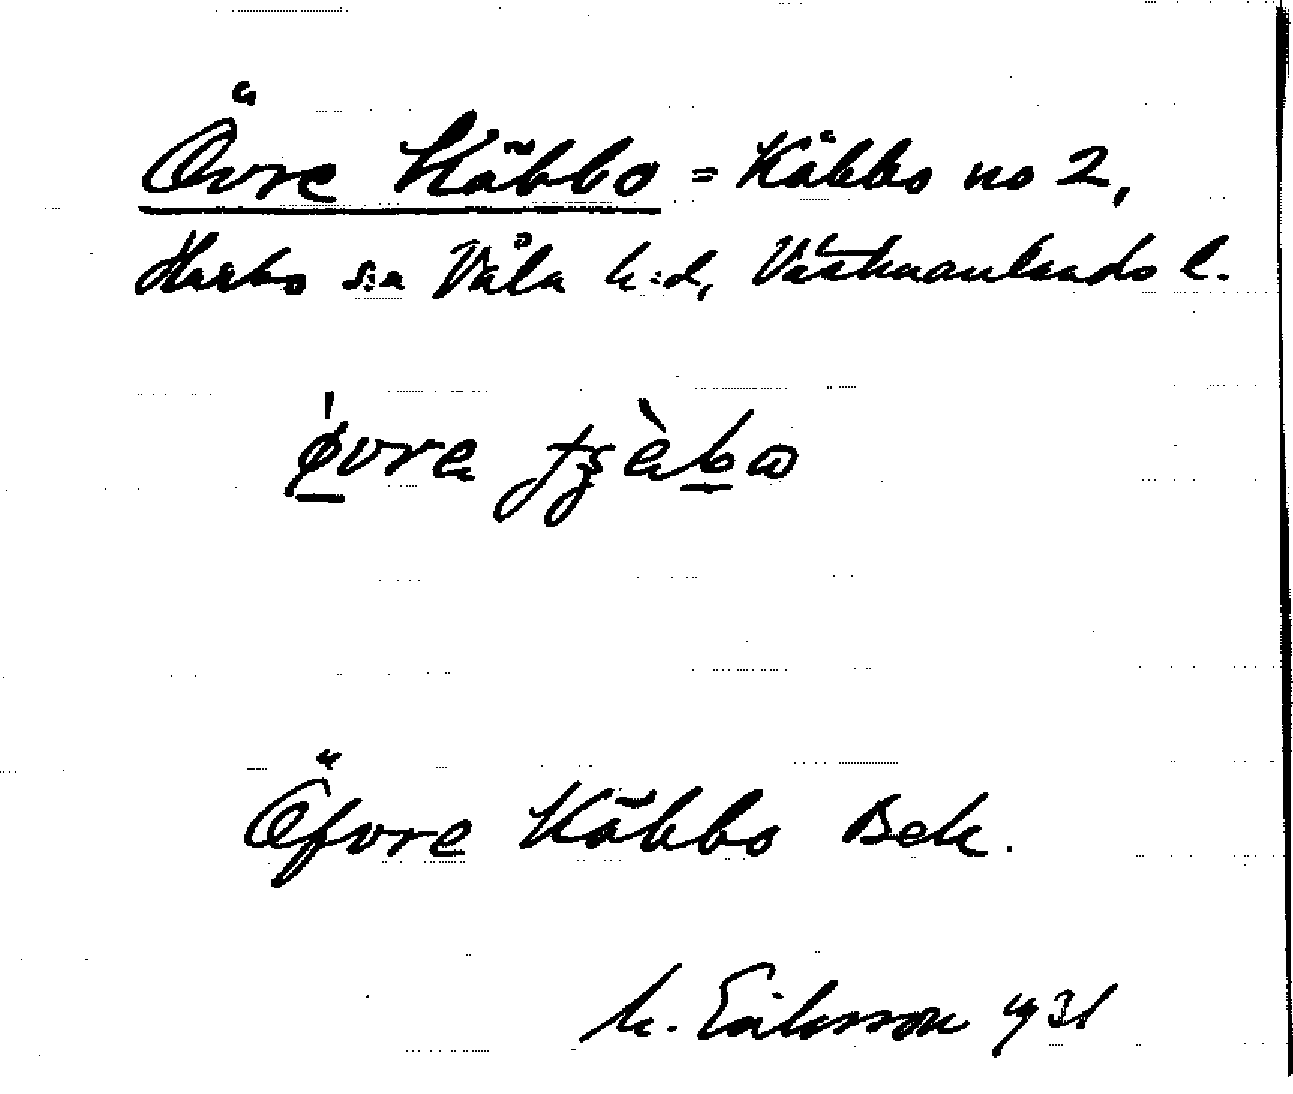 Övre Käbbo = Käbbo no 2,
Harbo s:n Våla h:d, Västmanlands l.
Öfvre Käbbo Bek.
M. Eriksson 1931